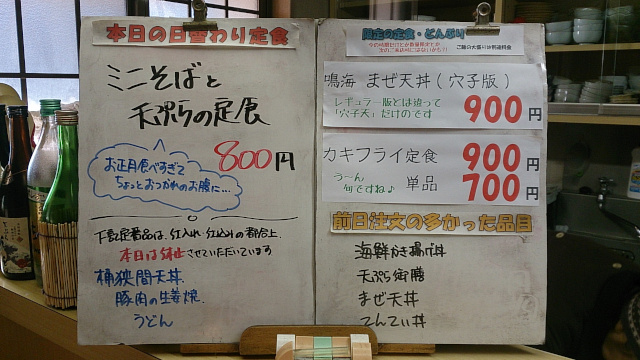 本日の日替わり定食
ミニそばと
天ぷらの定食
800円
お正月食べすぎて
ちょっとおつかれのお腹に…
下記定番品は、仕入れ・仕込みの都合上、
本日は休止させていただいています
桶狭間天丼
豚肉の生姜焼
うどん
限定の定食・どんぶり
ご飯の大盛りは別途料金
鳴海 まぜ天丼(穴子版)
レギュラー版とは違って
「穴子天」だけのです
900円
カキフライ定食 900円
う〜ん
旬ですね♪
単品 700円
前日注文の多かった品目
海鮮かき揚げ丼
天ぷら御膳
まぜ天丼
てんてぃ丼